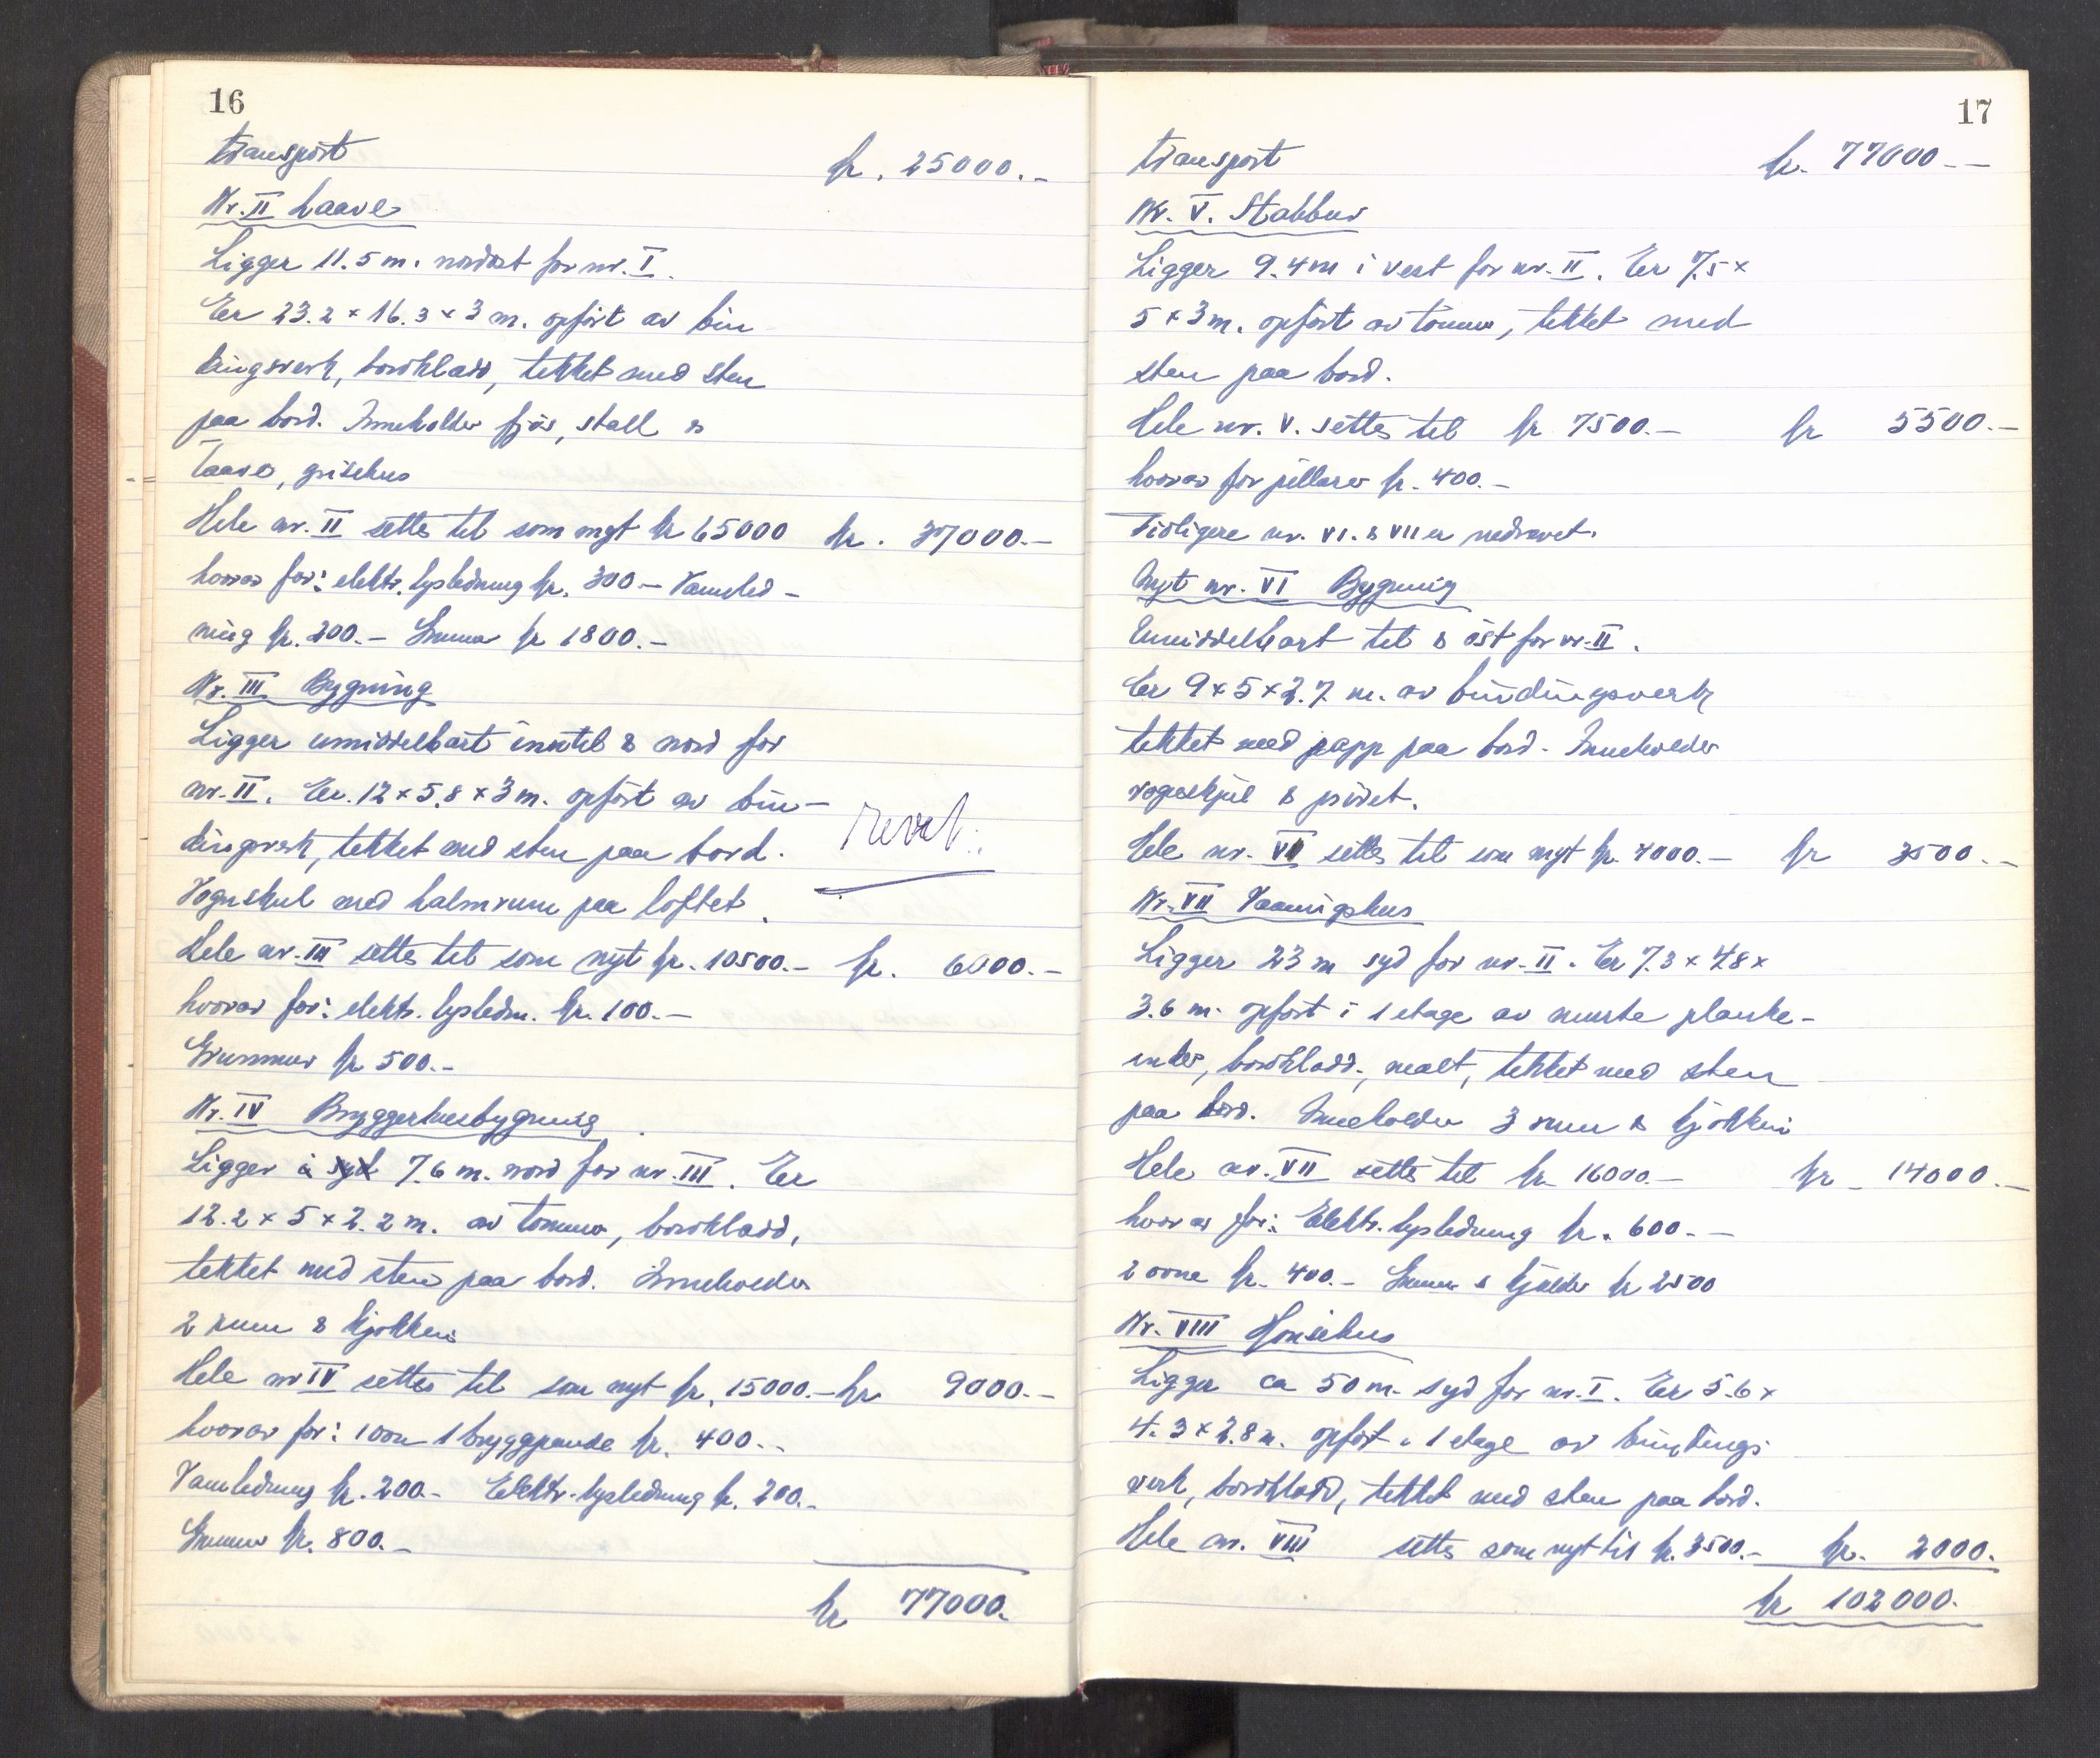 16
transport kr. 25000.-
Nr. II Laave
Ligger 11.5 m. nordöst for nr. I.
Er 23.2 x 16.3 x 3 m. opfört av bin
dingsverk, bordkladd, tekket med sten
paa bord. Inneholder fjös, stall &
laave, grisehus
Hele nr. II settes til som nyt kr 65000 kr. 37000.-
hvorav for: elektr. lysledning kr. 300.- Vannled-
ning kr. 200.- Grunmur kr 1800.-
Nr. III Bygning
Ligger umiddelbart inntil & nord for
nr. II. Er 12 x 5.8 x 3 m. opfört av bin-
dingsverk, tekket med sten paa bord.
revet.
Vognskul med halmrum paa loftet.
Hele nr. III settes til som nyt kr. 10500.- kr. 6000.-
hvorav for: elektr. lysledn. kr. 100.-
Grunmur kr 500.-
Nr. IV Bryggerhusbygning
Ligger i syd 7.6 m. nord for nr. III. Er
12.2 x 5 x 2.2 m. av tömmer, bordkladd,
tekket med sten paa bord. Inneholder
2 rum & kjökken
Hele nr IV settes til som nyt kr. 15000.- kr 9000.-
hvorav for: 1 ovn 1 bryggpande kr. 400.-
Vannledning kr. 200.- Elektr. lysledning kr. 200.-
Grunmur kr. 800.-
kr 77000.
17
transport kr. 77000.-
Nr. V. Stabbur
Ligger 9.4 m i vest for nr. II. Er 7.5 x
5 x 3 m. opfört av tömmer, tekket med
sten paa bord.
Hele nr. V. settes til kr 7500.- kr 5500.-
hvorav for pillarer kr. 400.-
Tidligere nr. VI. & VII er nedrevet.
Nyt nr. VI Bygning
Umiddelbart til & öst for nr. II.
Er 9 x 5 x 2.7 m. av bindingsverk
tekket med papp paa bord. Inneholder
vognskjul & privet.
Hele nr. VI settes til som nyt kr. 4000.- kr 3500.-
Nr. VII Vaaningshus
Ligger 23 m syd for nr. II. Er 7.3 x 4.8 x
3.6 m. opfört i 1 etage av planke-
bordkladd., malt, tekket med sten
paa bord. Inneholder 3 rum & kjökken
Hele nr. VII settes til kr 16000.- kr 14000.-
hvorav for: Elektr. lysledning kr. 600.-
2 ovne kr. 400.- Grunmur & kjelder kr 2500
Nr. VIII Hönsehus
Ligger ca 50 m. syd for nr. I. Er 5.6 x
4.3 x 2.8 m. opfört i 1 etage av bindings
verk, bordkladd, tekket med sten paa bord.
Hele nr. VIII settes som nyt til kr. 3500.- kr. 2000.
kr 102000.